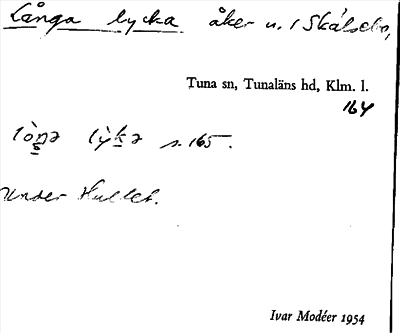 Långa lycka åker n. i Skálsebo,
Tuna sn, Tunaläns hd, Klm. l.
164
s. 165.
Under Hullet.
Ivar Modéer 1954